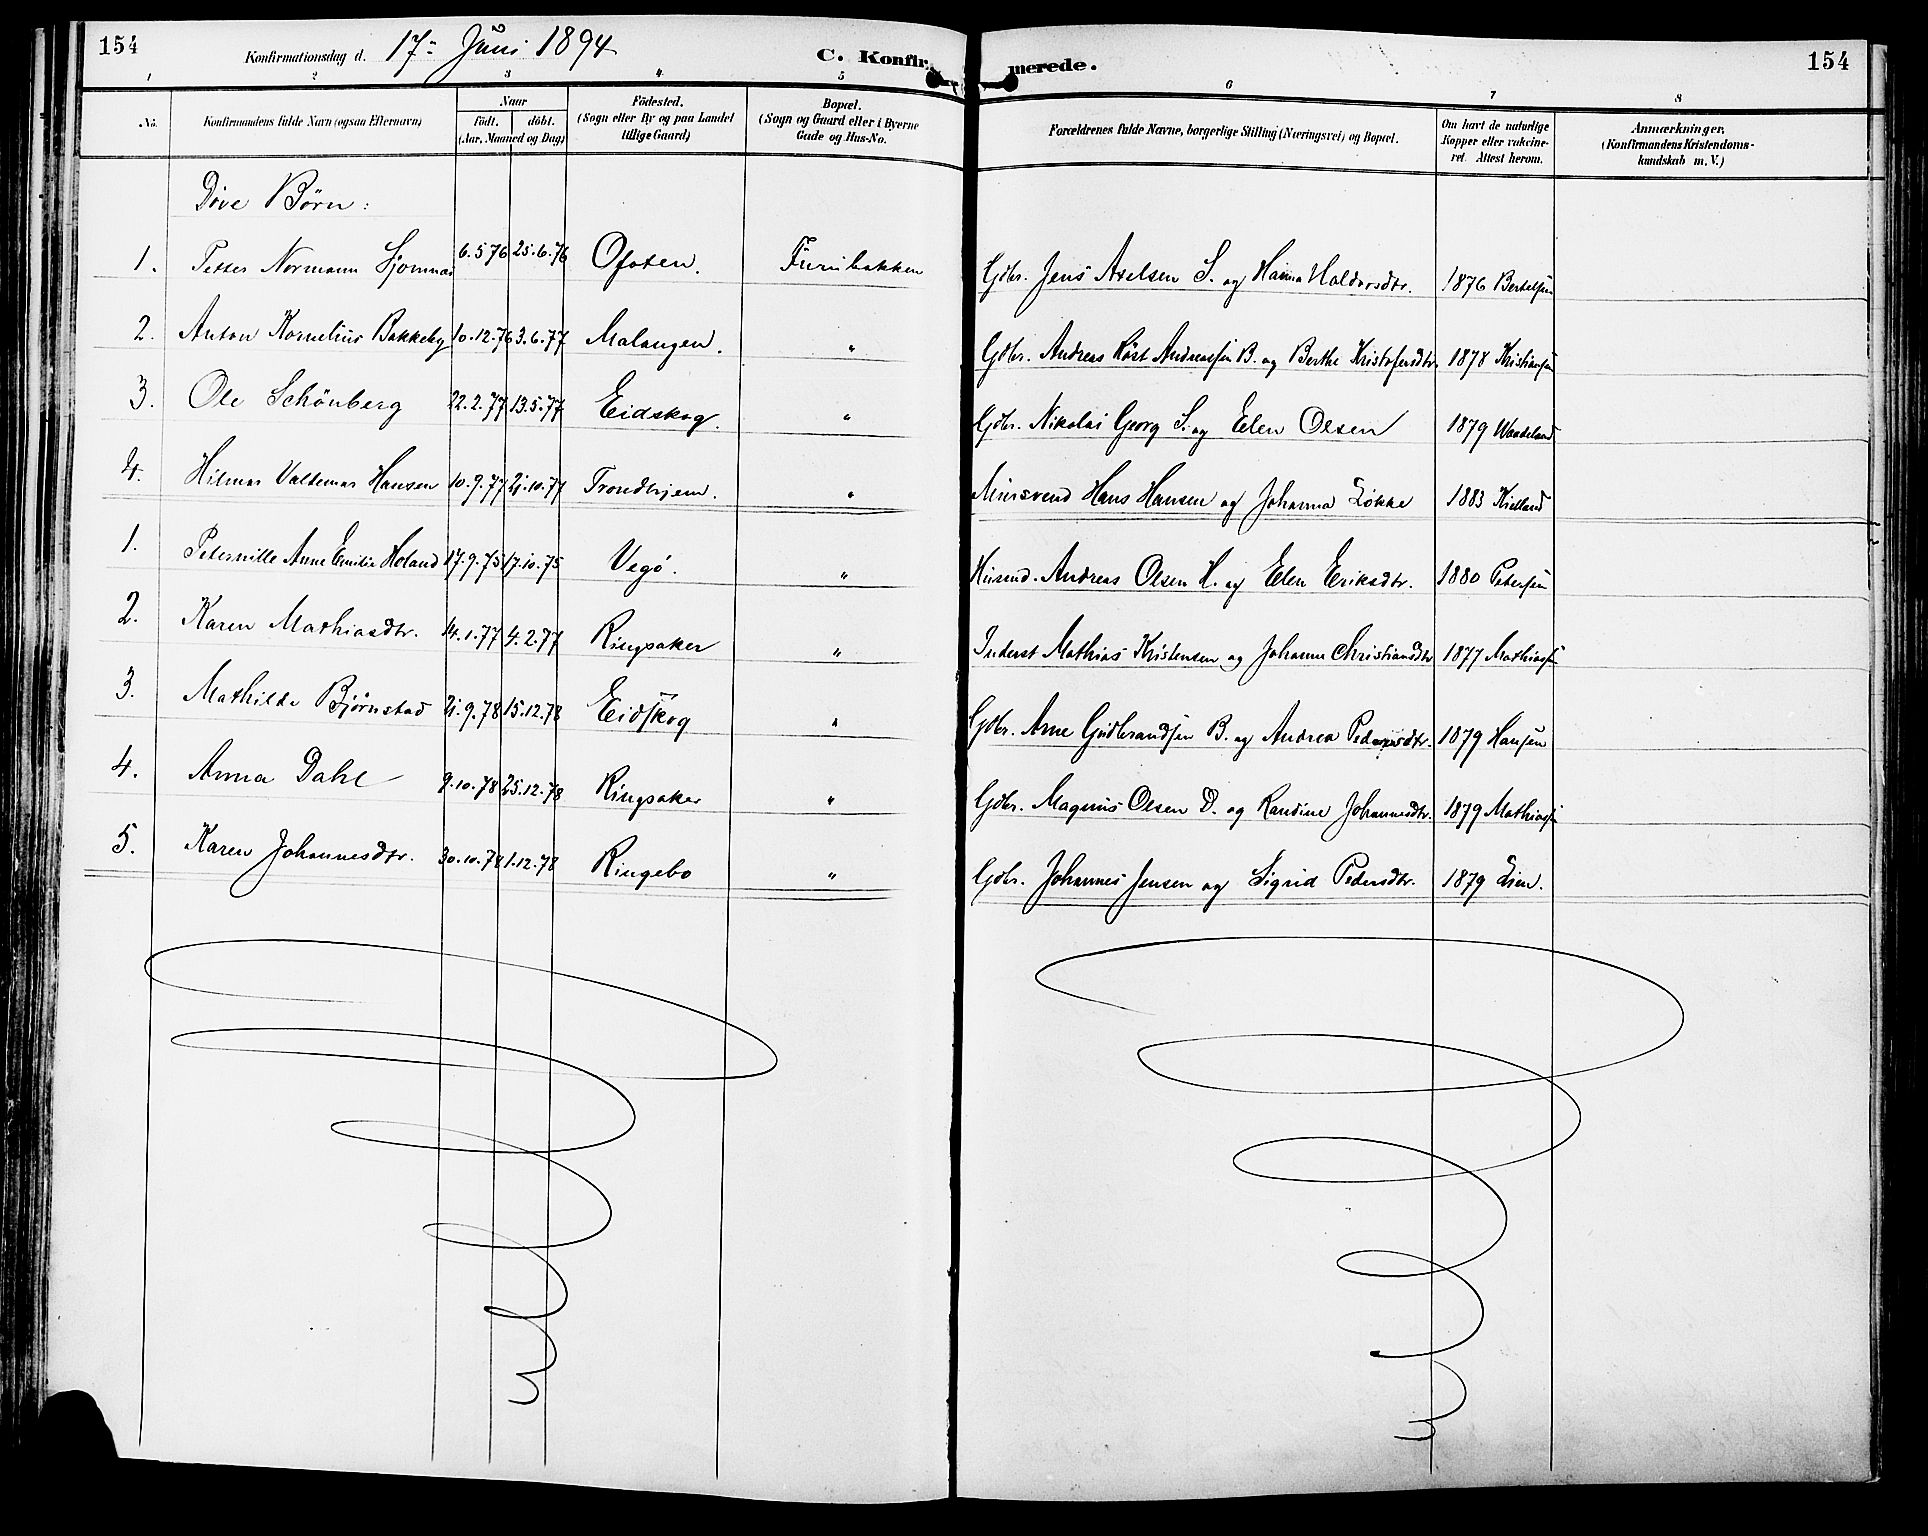 154
Konfirmationsdag d. 17: Juni 1894
C. Konfirmerede.
154
1 2 3 4 5 6 7 8
No.
Konfirmandens fulde Navn (ogsaa Efternavn)
Naar
födt. döbt.
(Aar, Maaned og Dag)
Födested.
(Sogn eller By og paa Landet
tillige Gaard)
Bopæl.
(Sogn og Gaard eller i Byerne
Gade og Hus-No.
Forældrenes fulde Navne, borgerlige Stilling (Næringsvei) og Bopæl.
Om havt de naturlige
Kopper eller vakcine-
ret. Attest herom.
Anmærkninger.
(Konfirmandens Kristendoms-
kundskab m. V.)
Døve Børn:
1. Petter Normann Sjomnæs 6.5.76 25.6.76 Ofoten. Furubakken Gdbr. Jens Axelsen S. og Hanna Haldorsdtr. 1876 Bertelsen
2. Anton Kornelius Bakkeby 10.12.76 3.6.77 Malangen. " Gdbr. Andreas Røst Andreassen B. og Berthe Kristofersdtr. 1878 Kristiansen
3. Ole Schönberg 22.2.77 13.5.77 Eidskog. " Gdbr. Nikolai Georg S. og Elen Olsen 1879 Waadeland
4. Hilmar Valdemar Hansen 10.9.77 21.10.77 Trondhjem. " Mursvend Hans Hansen og Johanna Løkke 1883 Kielland
1. Peternille Anne Emilie Holand 17.9.75 17.10.75 Vegø. " Husmd. Andreas Olsen H. og Elen Eriksdtr. 1880 Petersen
2. Karen Mathiasdtr. 14.1.77 4.2.77 Ringsaker " Inderst Mathias Kristensen og Johanne Christiansdtr 1877 Mathiassen
3. Mathilde Bjørnstad 21.9.78 15.12.78 Eidskog " Gdbr. Arne Gudbrandsen B. og Andrea Pedersdtr. 1879 Hansen
4. Anna Dahl 9.10.78 25.12.78 Ringsaker " Gdbr. Magnus Olsen D. og Randine Johannesdtr. 1879 Mathiassen
5. Karen Johannesdtr. 30.10.78 1.12.78 Ringebo " Gdbr. Johannes Jensen og Sigrid Pedersdtr. 1879 Lien.